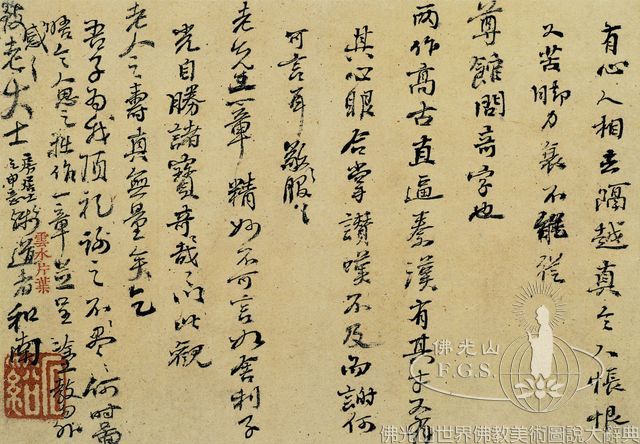 有心人相去隔越真令人悵恨
又苦脚力衰不能從
尊館問奇字也
兩作高古直逼秦漢有其才又有
其心眼合掌讚嘆不及而謝何
可言耶敬服々
老先生一章精妙不可言如舍利子
光自勝諸寶奇哉々以此觀
老人之壽真無量矣乞
吾子為我頂礼謝之不盡々何時當
晤令人思之拙作一章並呈塗教外
感々
老大士
道者和南
雲水片葉
佛光山
F.G.S.
佛光山世界佛教美術圖說大辭典